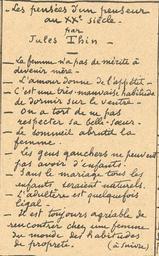 - Les pensées d'un penseur
au XXe siècle -
par
Jules Ihin
- La femme n'a pas de mérite à
devenir mère -
- L'amour donne de l'appétit -
- C'est une très mauvaise habitude
de dormir sur le ventre -
- On a tort de ne pas
respecter sa belle-sœur -
- Le sommeil abrutit la
femme -
- Les gens gauchers ne peuvent
pas avoir d'enfants.
- Sans le mariage tous les
enfants seraient naturels.
- L'adultère est quelquefois
légal -
- Il est toujours agréable de
rencontrer chez une femme
du monde des habitudes
de propreté. (à suivre)